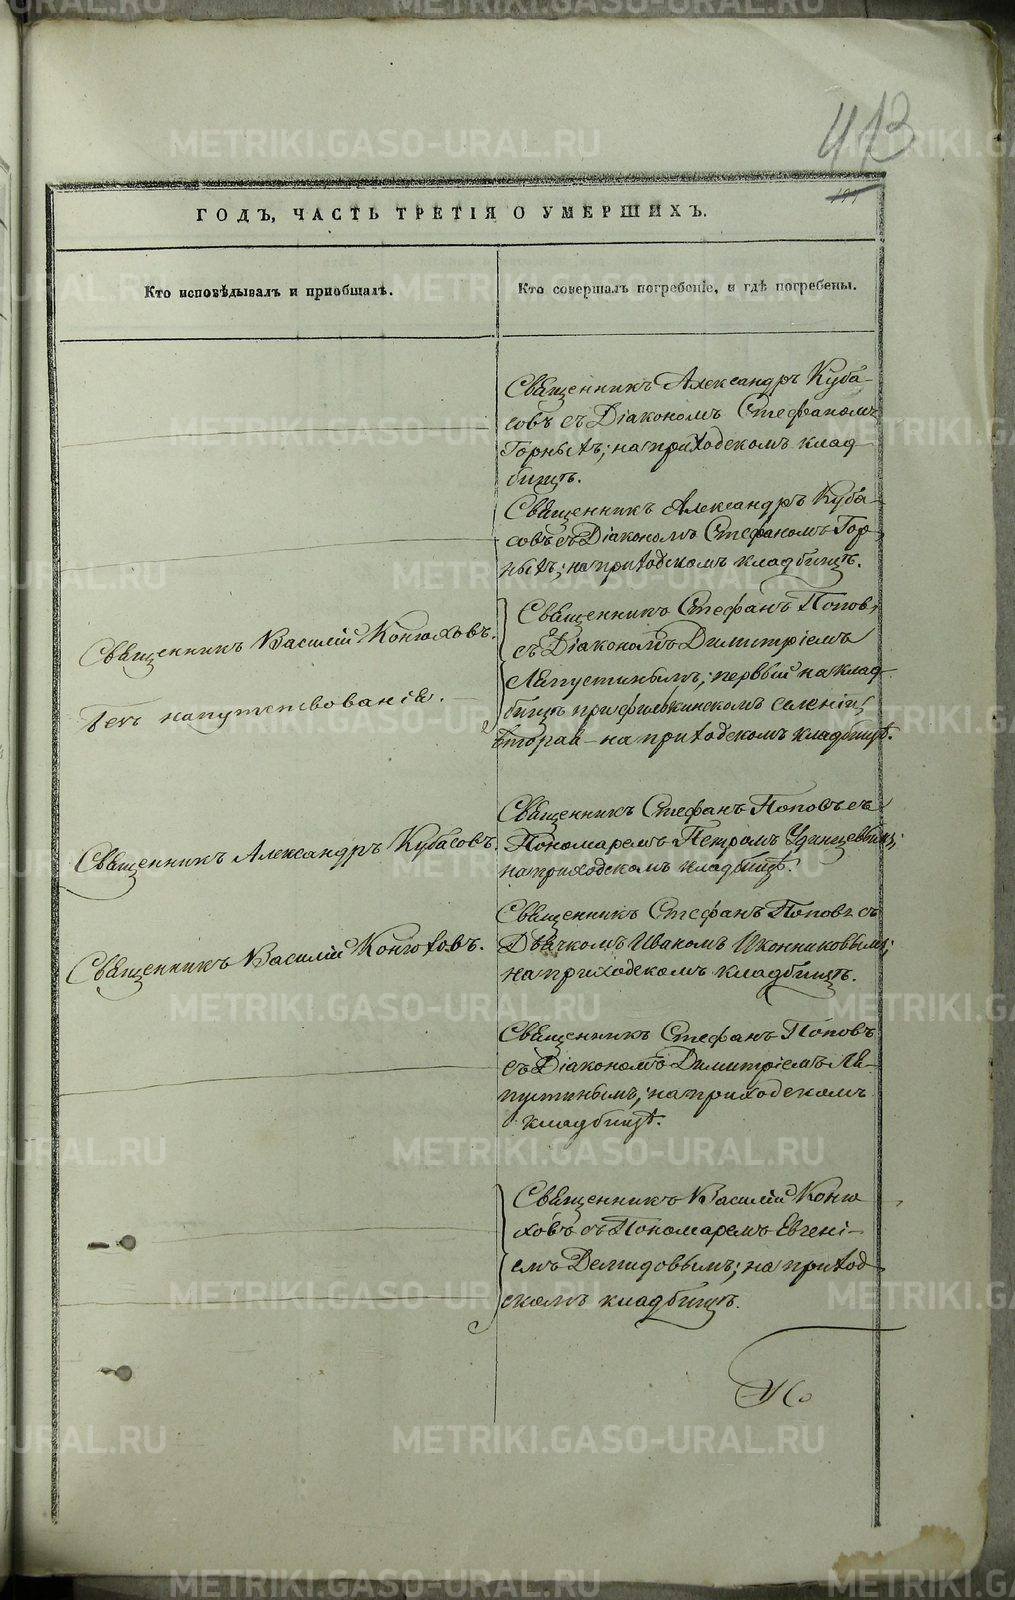 413
ГОДЪ, ЧАСТЬ ТРЕТІЯ О УМЕРШИХЪ.
Кто исповѣдывалъ и пріобщалъ.
Кто совершалъ погребеніе, и гдѣ погребены.
Священникъ Александръ Куба-
совъ съ Діакономъ Стефаномъ
Горныхъ; на приходскомъ клад-
бищѣ.
Священникъ Александръ Куба-
совъ съ Діакономъ Стефаномъ Гор-
ныхъ; на приходскомъ кладбищѣ.
Священникъ Василій Конюховъ.
Безъ напутствованія.
Священникъ Стефанъ Поповъ
съ Діакономъ Димитріемъ
Ляпустинымъ; первый на клад-
бищѣ при Филькинскомъ селеніи,
вторая – на приходскомъ кладбищѣ.
Священникъ Александръ Кубасовъ.
Священникъ Стефанъ Поповъ съ
Пономаремъ Петромъ Удинцевымъ;
на приходскомъ кладбищѣ.
Священникъ Василій Конюховъ.
Священникъ Стефанъ Поповъ съ
Дьячкомъ Иваномъ Иконниковымъ;
на приходскомъ кладбищѣ.
Священникъ Стефанъ Поповъ
съ Діакономъ Димитріемъ Ля-
пустинымъ; на приходскомъ
кладбищѣ.
Священникъ Василій Коню-
ховъ съ Пономаремъ Евгені-
емъ Демидовымъ; на приход-
скомъ кладбищѣ.
METRIKI.GASO-URAL.RU